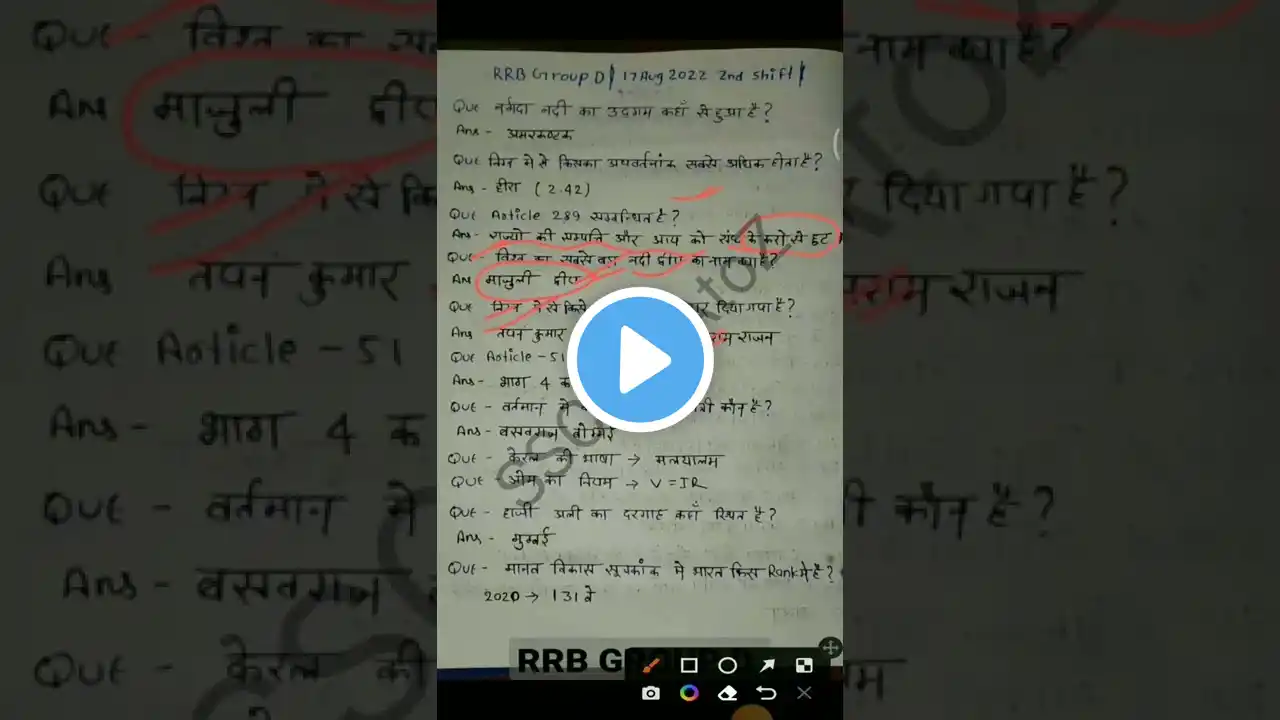 RRB Group D | 17 Aug 2022 2nd Shift |
Que नर्मदा नदी का उदगम कहाँ से हुआ है?
Ans - अमरकण्टक
Que निम्न मे से किसका अपवर्तनांक सबसे अधिक होता है?
Ans - हीरा (2.42)
Que Article 289 सम्बन्धित है?
Ans - राज्यो की सम्पत्ति और आय को संघ के करो से छूट
Que - विश्व का सबसे बड़ा नदी द्वीप का नाम क्या है?
Ans माजुली द्वीप
Que निम्न मे से किसे दिया गया है?
Ans तपन कुमार राजन
Que Article - 51
Ans - भाग 4 क
Que - वर्तमान मे कौन है?
Ans - बसवराज बोम्मई
Que - केरल की भाषा → मलयालम
Que ओम का नियम → V = IR
Que - हाजी अली का दरगाह कहाँ स्थित है?
Ans - मुम्बई
Que - मानव विकास सूचकांक मे भारत किस Rank मे है?
2020 → 131 वे
RRB GROUP D
SSC